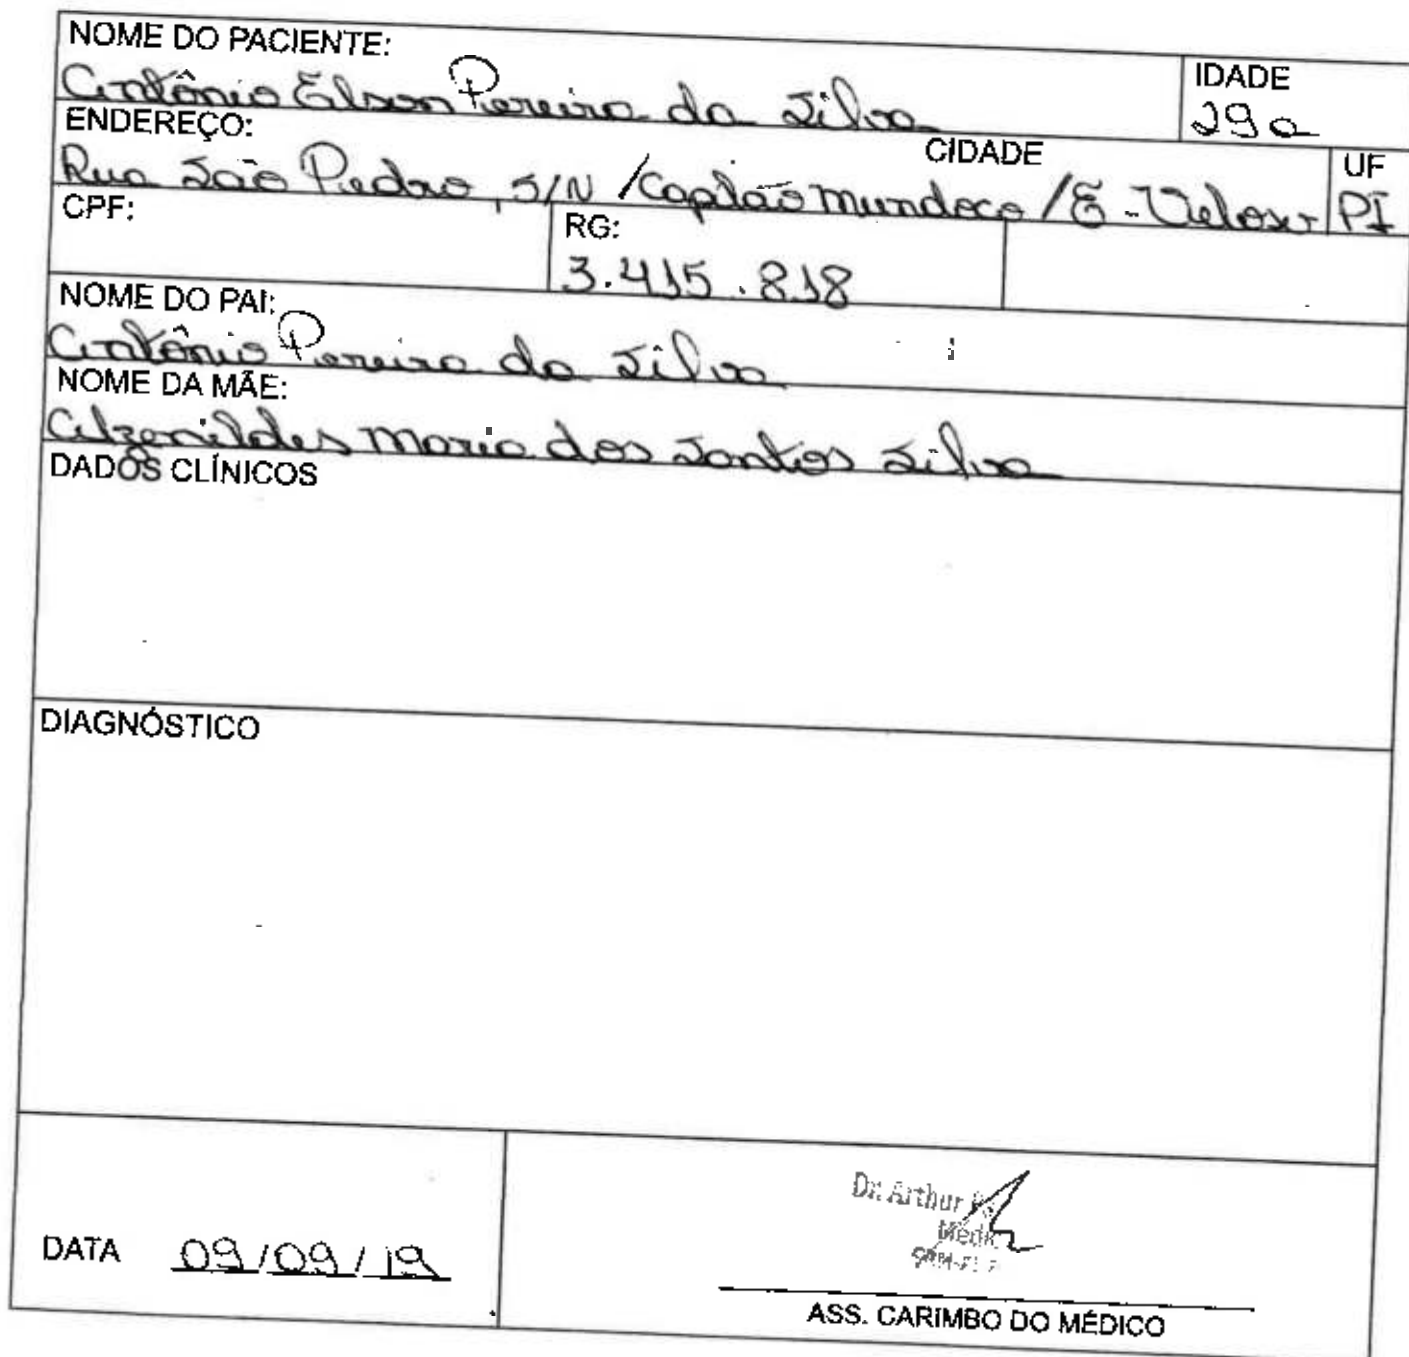 NOME DO PACIENTE:
Antônio Elson Pereira da Silva
IDADE
29 a
ENDEREÇO:
CIDADE
UF
Rua São Pedro, S/N / Capitão mundoco / E. Veloso
PI
CPF:
RG:
3.415.818
NOME DO PAI:
Antônio Pereira da Silva
NOME DA MÃE:
Alzenildes Maria dos Santos Silva
DADOS CLÍNICOS
DIAGNÓSTICO
DATA 09/09/19
Dr. Arthur
Médic
CRM-PI
ASS. CARIMBO DO MÉDICO